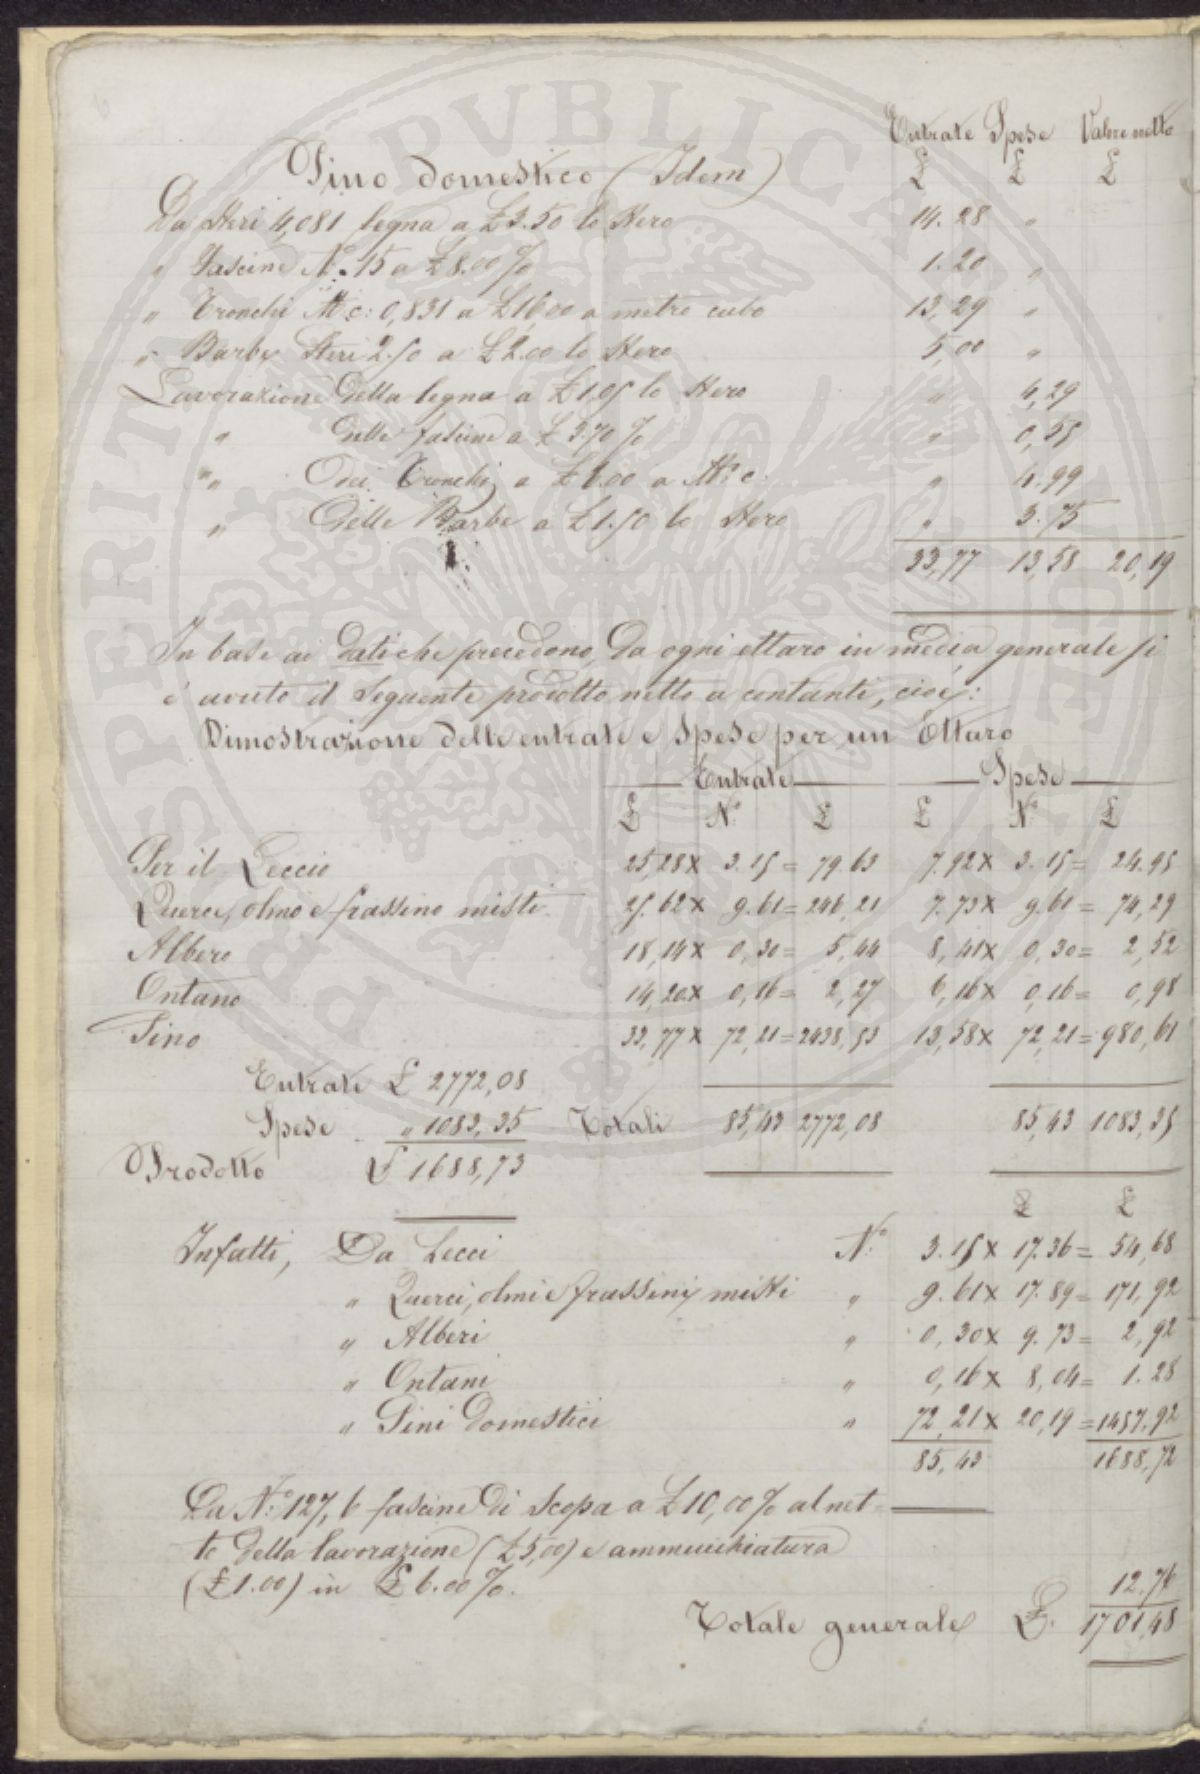 Entrate Spese Valore netto
Pino domestico (Idem) £ £ £
Da Steri 4,081 legna a £ 3.50 lo Stero 14.28 "
" Fascine N. 15 a £ 8.00 % 1.20 "
" Tronchi M. c: 0,831 a £ 16,00 a metro cubo 13,29 "
" Barbe Steri 2.50 a £ 2.00 lo Stero 5,00 "
Lavorazione della legna a £ 1,05 lo Stero " 4,29
" delle fascine a £ 3.70 % " 0,55
" " Dei Tronchi a £ 6.00 a M. c: " 4.99
" Delle Barbe a £ 1.50 lo Stero " 3.75
33,77 13,58 20,19
In base ai dati che precedono, da ogni ettaro in media generale si
è avuto il seguente prodotto netto a contanti, cioè:
Dimostrazione delle entrate e Spese per un Ettaro
Entrate Spese
£ N.° £ £ N.° £
Per il Leccio 25,28 x 3.15 = 79.63 7.92 x 3.15 = 24.95
Querce, olmo e frassino misti 25.62 x 9.61 = 246,21 7.73 x 9.61 = 74,29
Albero 18,14 x 0,30 = 5,44 8,41 x 0,30 = 2,52
Ontano 14,20 x 0,16 = 2,27 6,16 x 0,16 = 0,98
Pino 33,77 x 72,21 = 2438,53 13,58 x 72,21 = 980,61
Entrate £ 2772,08
Spese " 1083,35 Totali 85,43 2772,08 85,43 1083,35
Prodotto £ 1688,73
£ £
Infatti, Da Lecci N.° 3.15 x 17.36 = 54,68
" Querci, olmi e frassini misti " 9.61 x 17.89 = 171,92
" Alberi " 0,30 x 9.73 = 2,92
" Ontani " 0,16 x 8,04 = 1.28
" Pini Domestici " 72,21 x 20,19 = 1457.92
85,43 1688,72
Da N.° 127,6 fascine di Scopa a £ 10,00 % al net-
to della lavorazione (£ 5,00) e ammucchiatura
(£ 1.00) in £ 6.00 %. 12.76
Totale generale £. 1701,48
PROSPERITATI PVBLICAE AVGENDAE